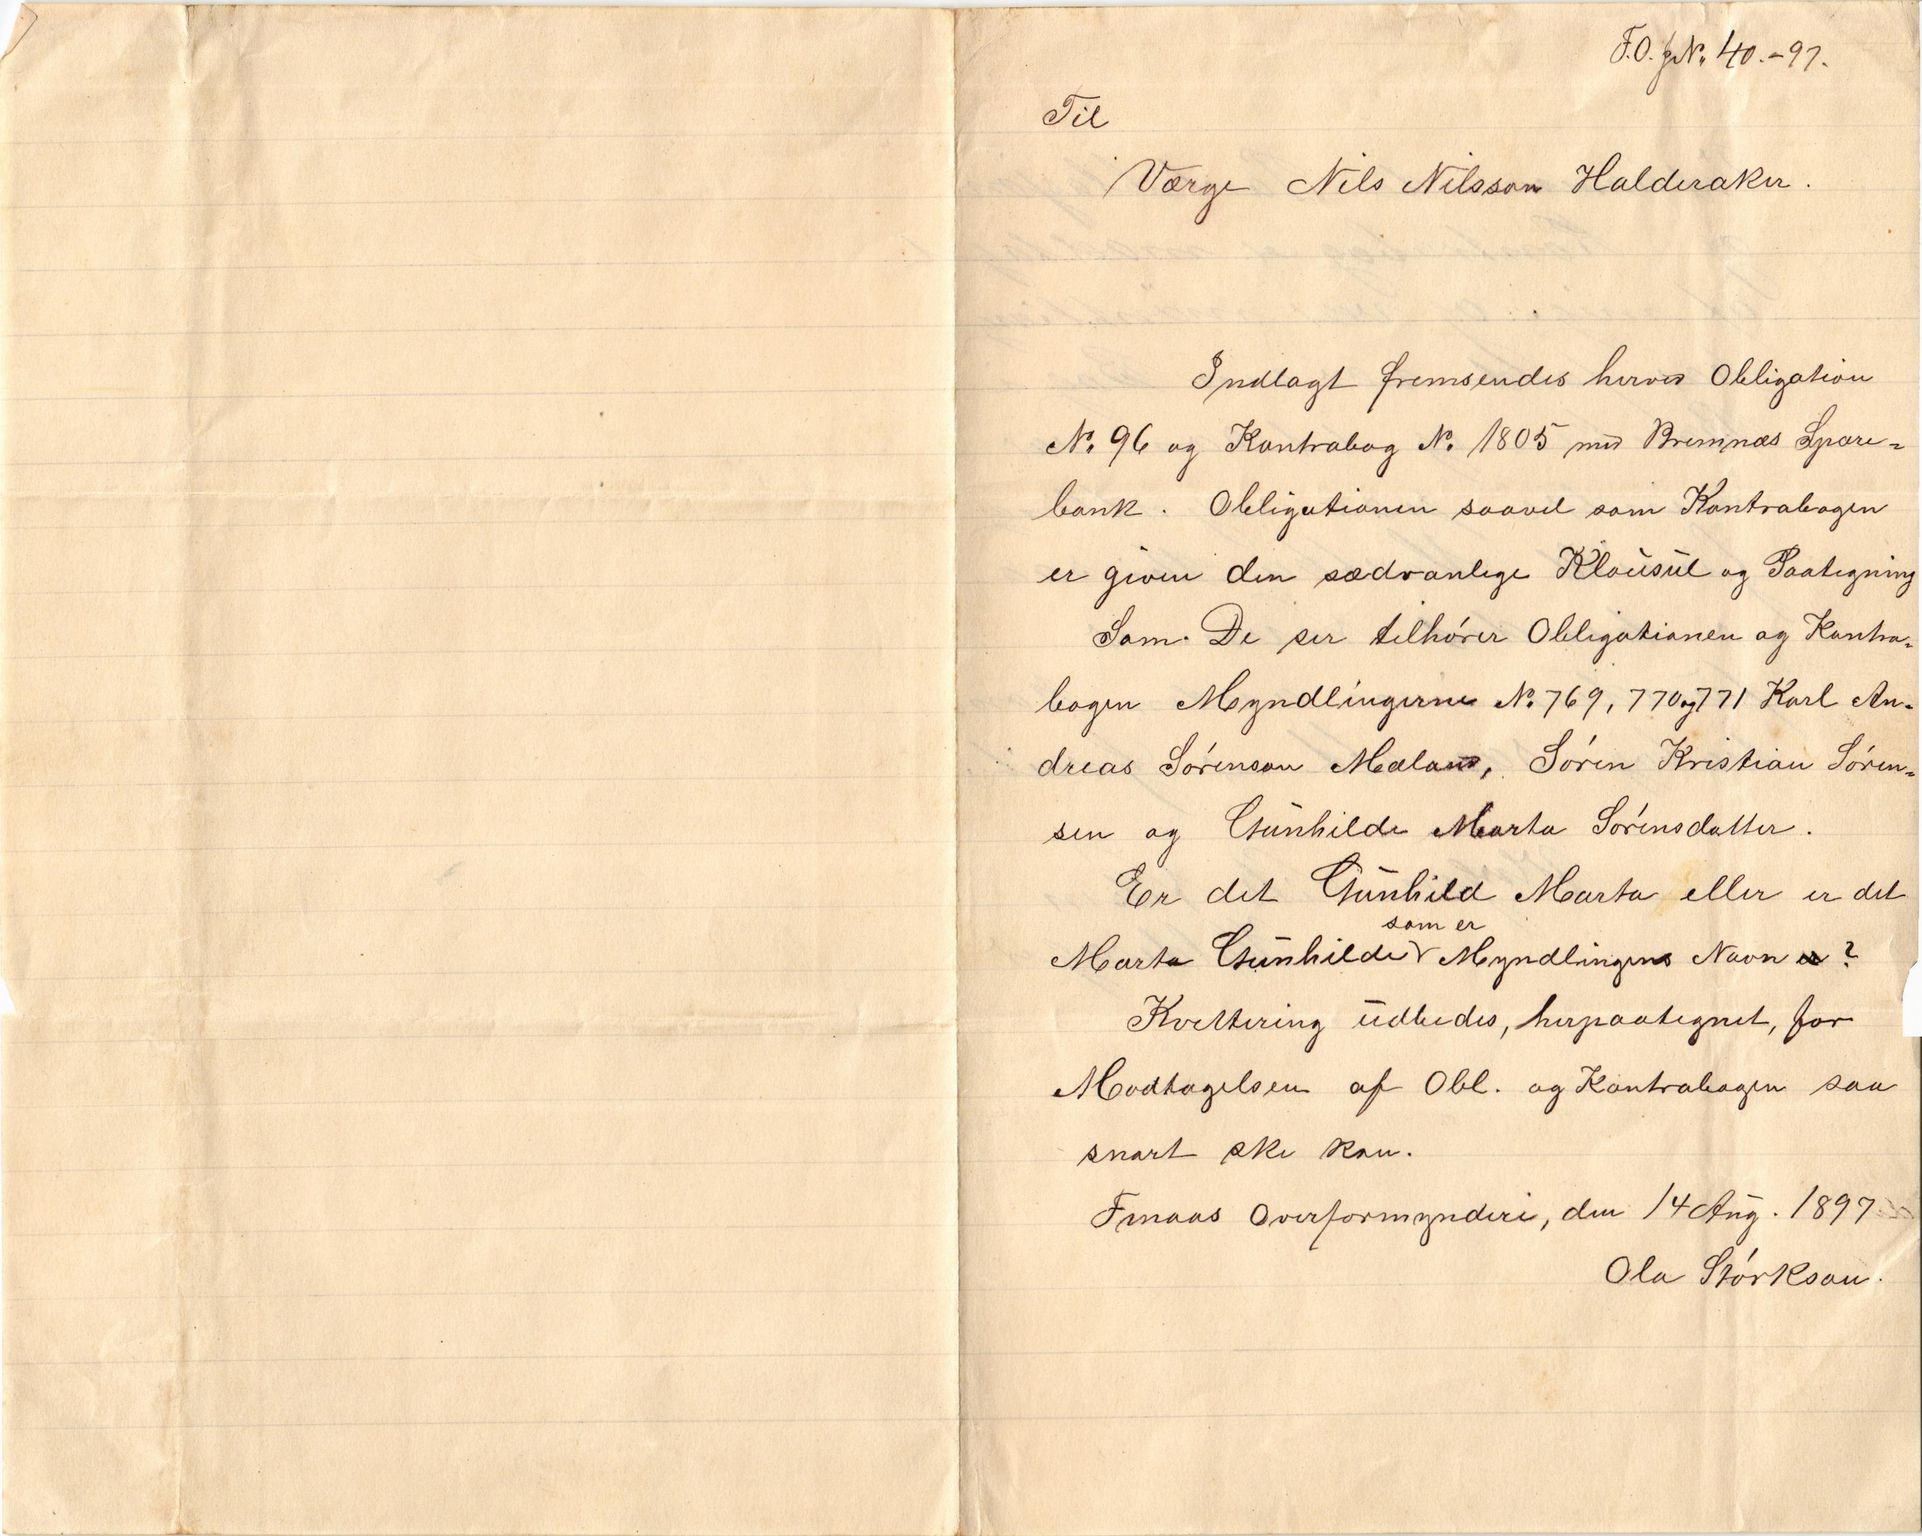 F.O. jN. 40.-97.
Til
Værge Nils Nilsson Halderaker.
Indlagt fremsendes herved Obligation
N. 96 og Kontrabog N. 1805 med Bremnæs Spare-
bank. Obligationen saavel som Kontrabogen
er given den sædvanlige Klausul og Paategning
Som De ser tilhører Obligationen og Kontra-
bogen Myndlingerne N. 769, 770 og 771 Karl An-
dreas Sørenson Mæland, Søren Kristian Søren-
sen og Gunhilde Marta Sørensdatter.
Er det Gunhild Marta eller er det
som er
Marta Gunhilde Myndlingens Navn ?
Kvittering udbedes, herpaategnet, for
Modtagelsen af Obl. og Kontrabogen saa
snart ske kan.
Finaas Overformynderi, den 14 Aug. 1897
Ola Størkson.